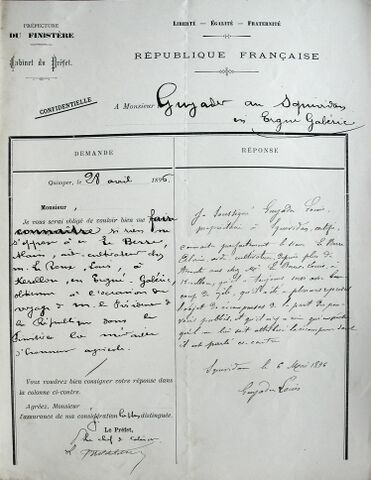 PRÉFECTURE
DU FINISTÈRE
Cabinet du Préfet.
LIBERTÉ — ÉGALITÉ — FRATERNITÉ
RÉPUBLIQUE FRANÇAISE
CONFIDENTIELLE
A Monsieur Guyader au Squividan
en Ergué Gabéric
DEMANDE
Quimper, le 28 avril 1896
Monsieur,
Je vous serai obligé de vouloir bien me faire
connaître si rien ne
s'oppose à ce Le Berre,
Alain, cultivateur chez
M. Le Roux, Louis, à
Kerellou, en Ergué-Gabéric,
obtienne à l'occasion du
voyage de M. le Président de
la République dans le
Finistère la médaille
d'honneur agricole.
Vous voudrez bien consigner votre réponse dans
la colonne ci-contre.
Agréez, Monsieur
l'assurance de ma considération la plus distinguée.
Le Préfet,
Le chef de Cabinet
RÉPONSE
Je soussigné Guyader Louis,
propriétaire à Squividan, certifie
connaître parfaitement le Le Berre
Alain, cultivateur depuis plus de
trente ans chez Mr Le Roux, Louis, à
qu'il a toujours beau-
coup de zèle, qu'il a plusieurs
l'objet de récompenses de la part des pou-
voirs publics, et qu'il n'y a rien qui
qu'on lui attribue la récompense dont
il est parlé ci contre
Squividan le 6 Mai 1896
Guyader Louis